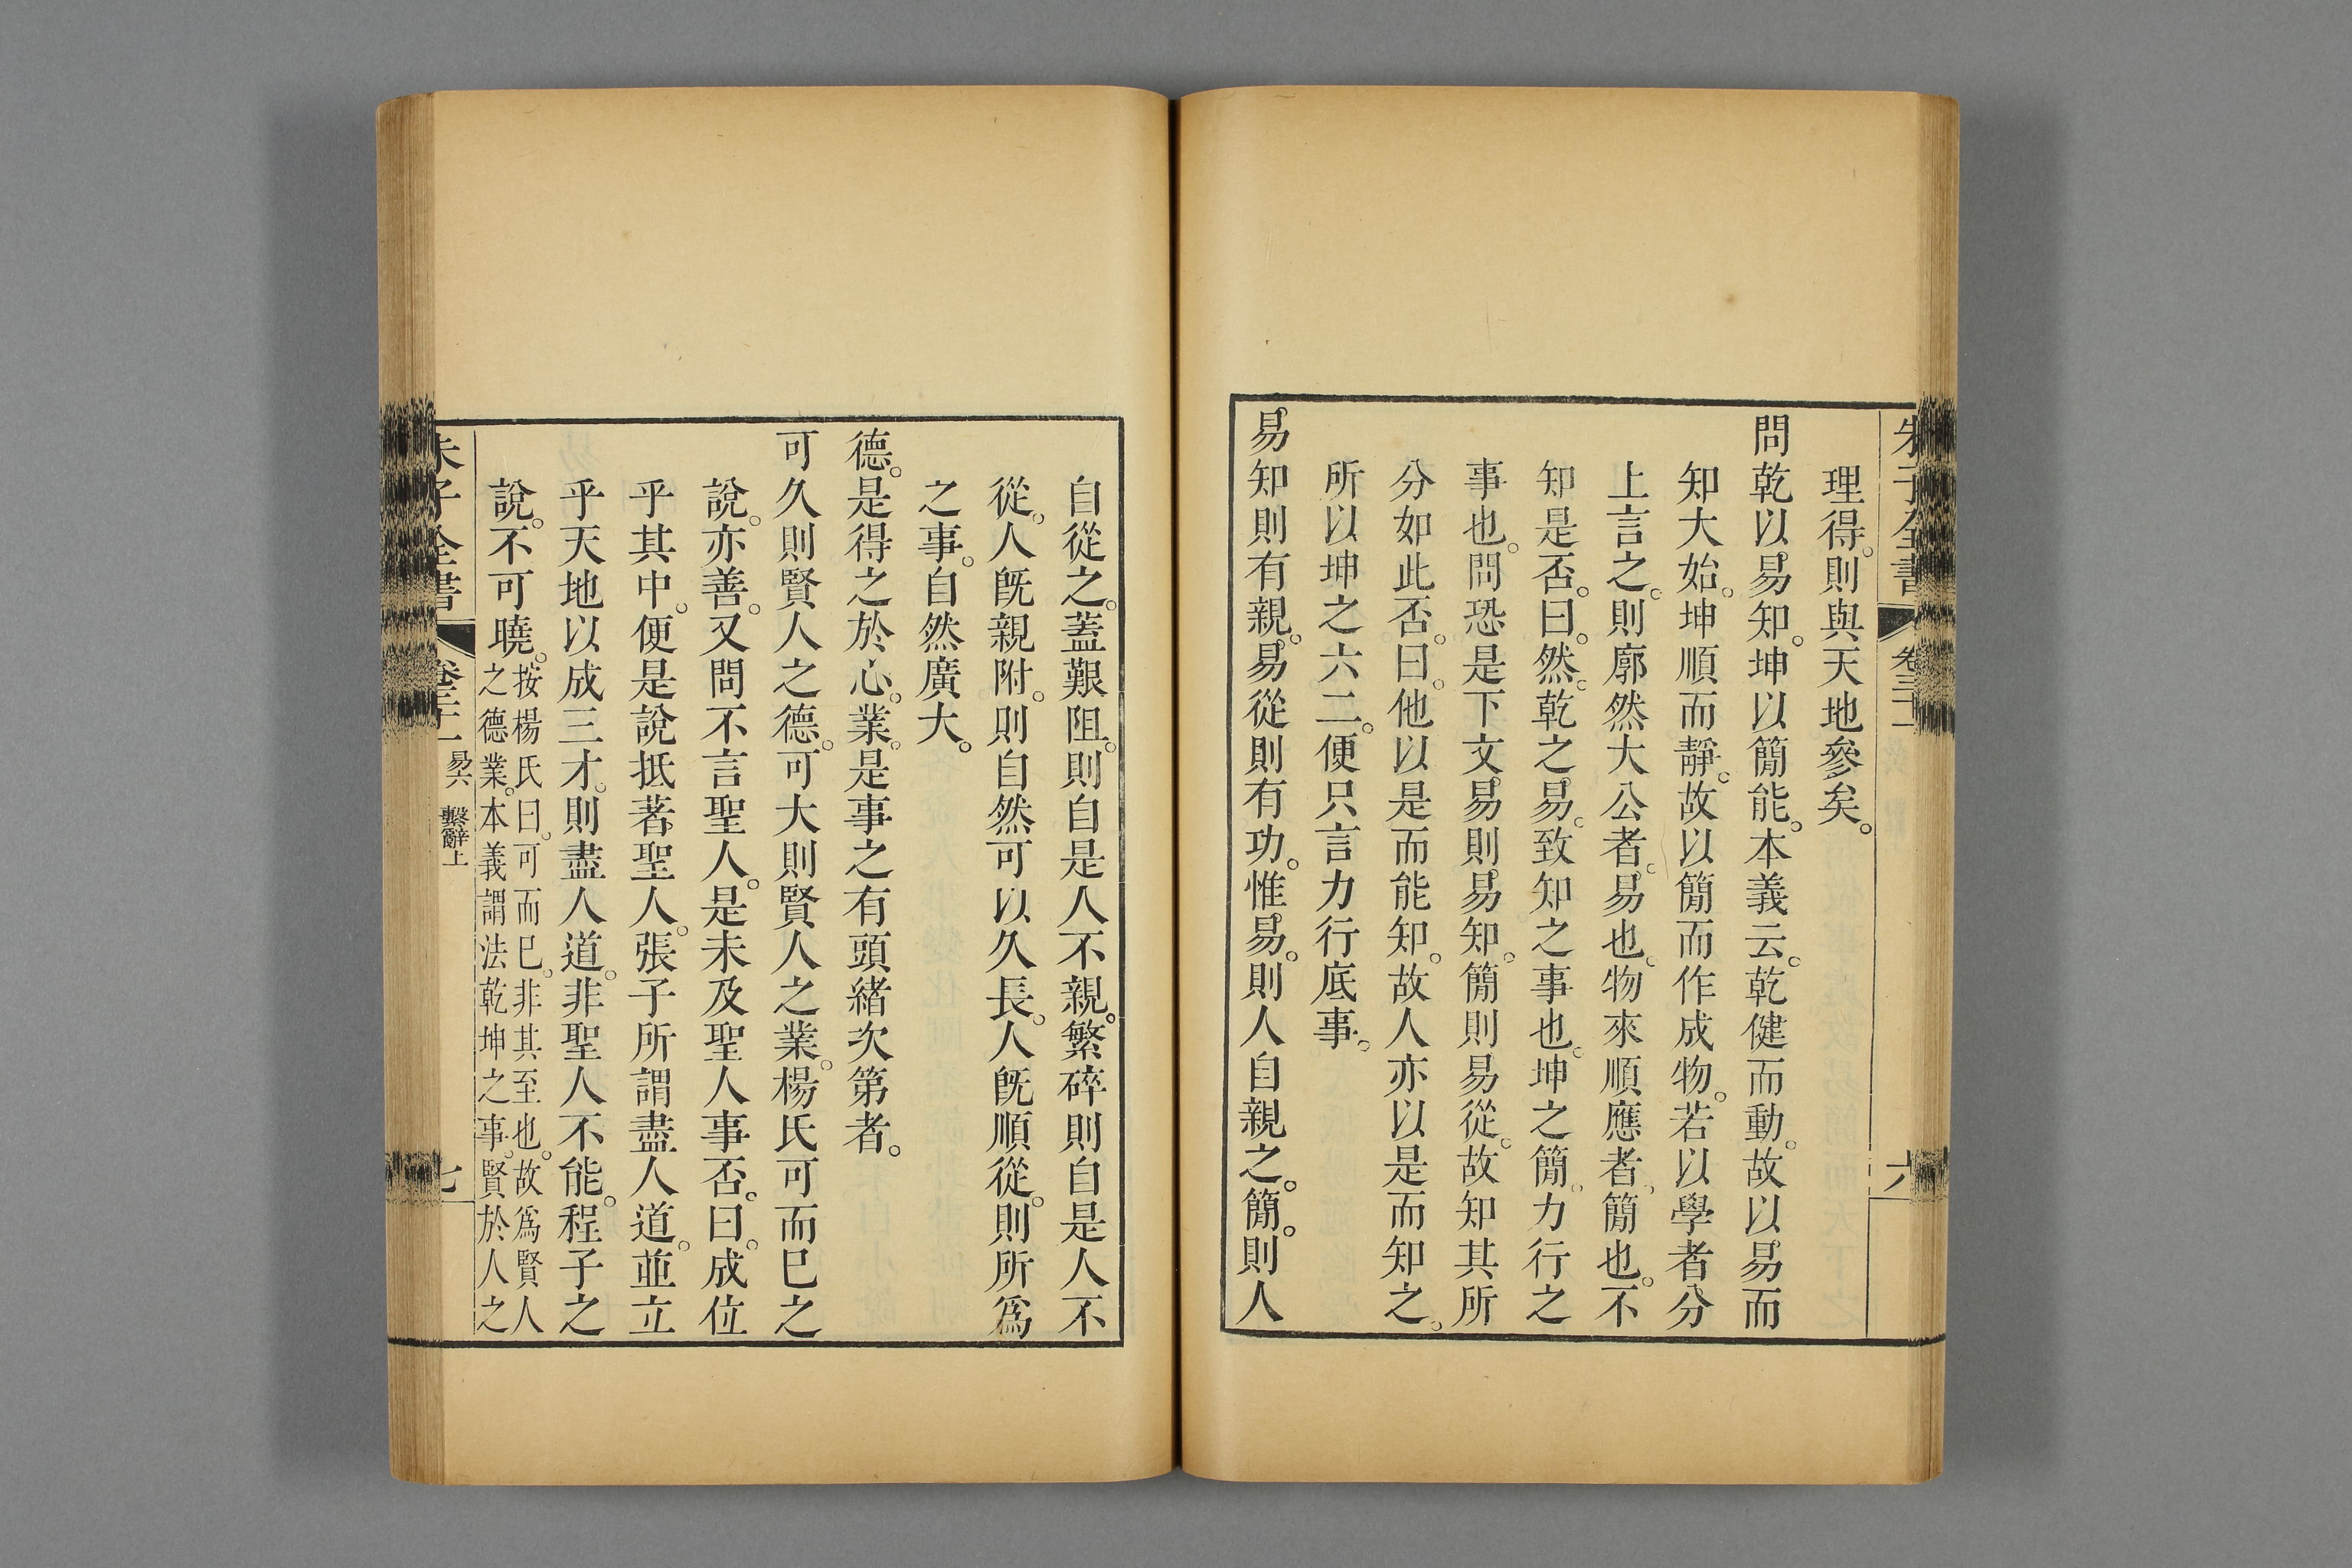 朱子全書 卷三十一 六
理得。則與天地參矣。
問乾以易知。坤以簡能。本義云。乾健而動。故以易而
知大始。坤順而靜。故以簡而作成物。若以學者分
上言之。則廓然大公者。易也。物來順應者。簡也。不
知是否。曰。然。乾之易。致知之事也。坤之簡。力行之
事也。問恐是下文易則易知。簡則易從。故知其所
分如此否。曰。他以是而能知。故人亦以是而知之。
所以坤之六二。便只言力行底事。
易知則有親。易從則有功。惟易。則人自親之。簡。則人
自從之。蓋艱阻。則自是人不親。繁碎則自是人不
從。人旣親附。則自然可以久長。人旣順從。則所爲
之事。自然廣大。
德。是得之於心。業。是事之有頭緒次第者。
可久則賢人之德。可大則賢人之業。楊氏可而已之
說。亦善。又問不言聖人。是未及聖人事否。曰。成位
乎其中。便是說抵著聖人。張子所謂盡人道。並立
乎天地以成三才。則盡人道。非聖人不能。程子之
說。不可曉。按楊氏曰。可而已。非其至也。故爲賢人
之德業。本義謂法乾坤之事。賢於人之
朱子全書 卷三十一 易六 繫辭上 七